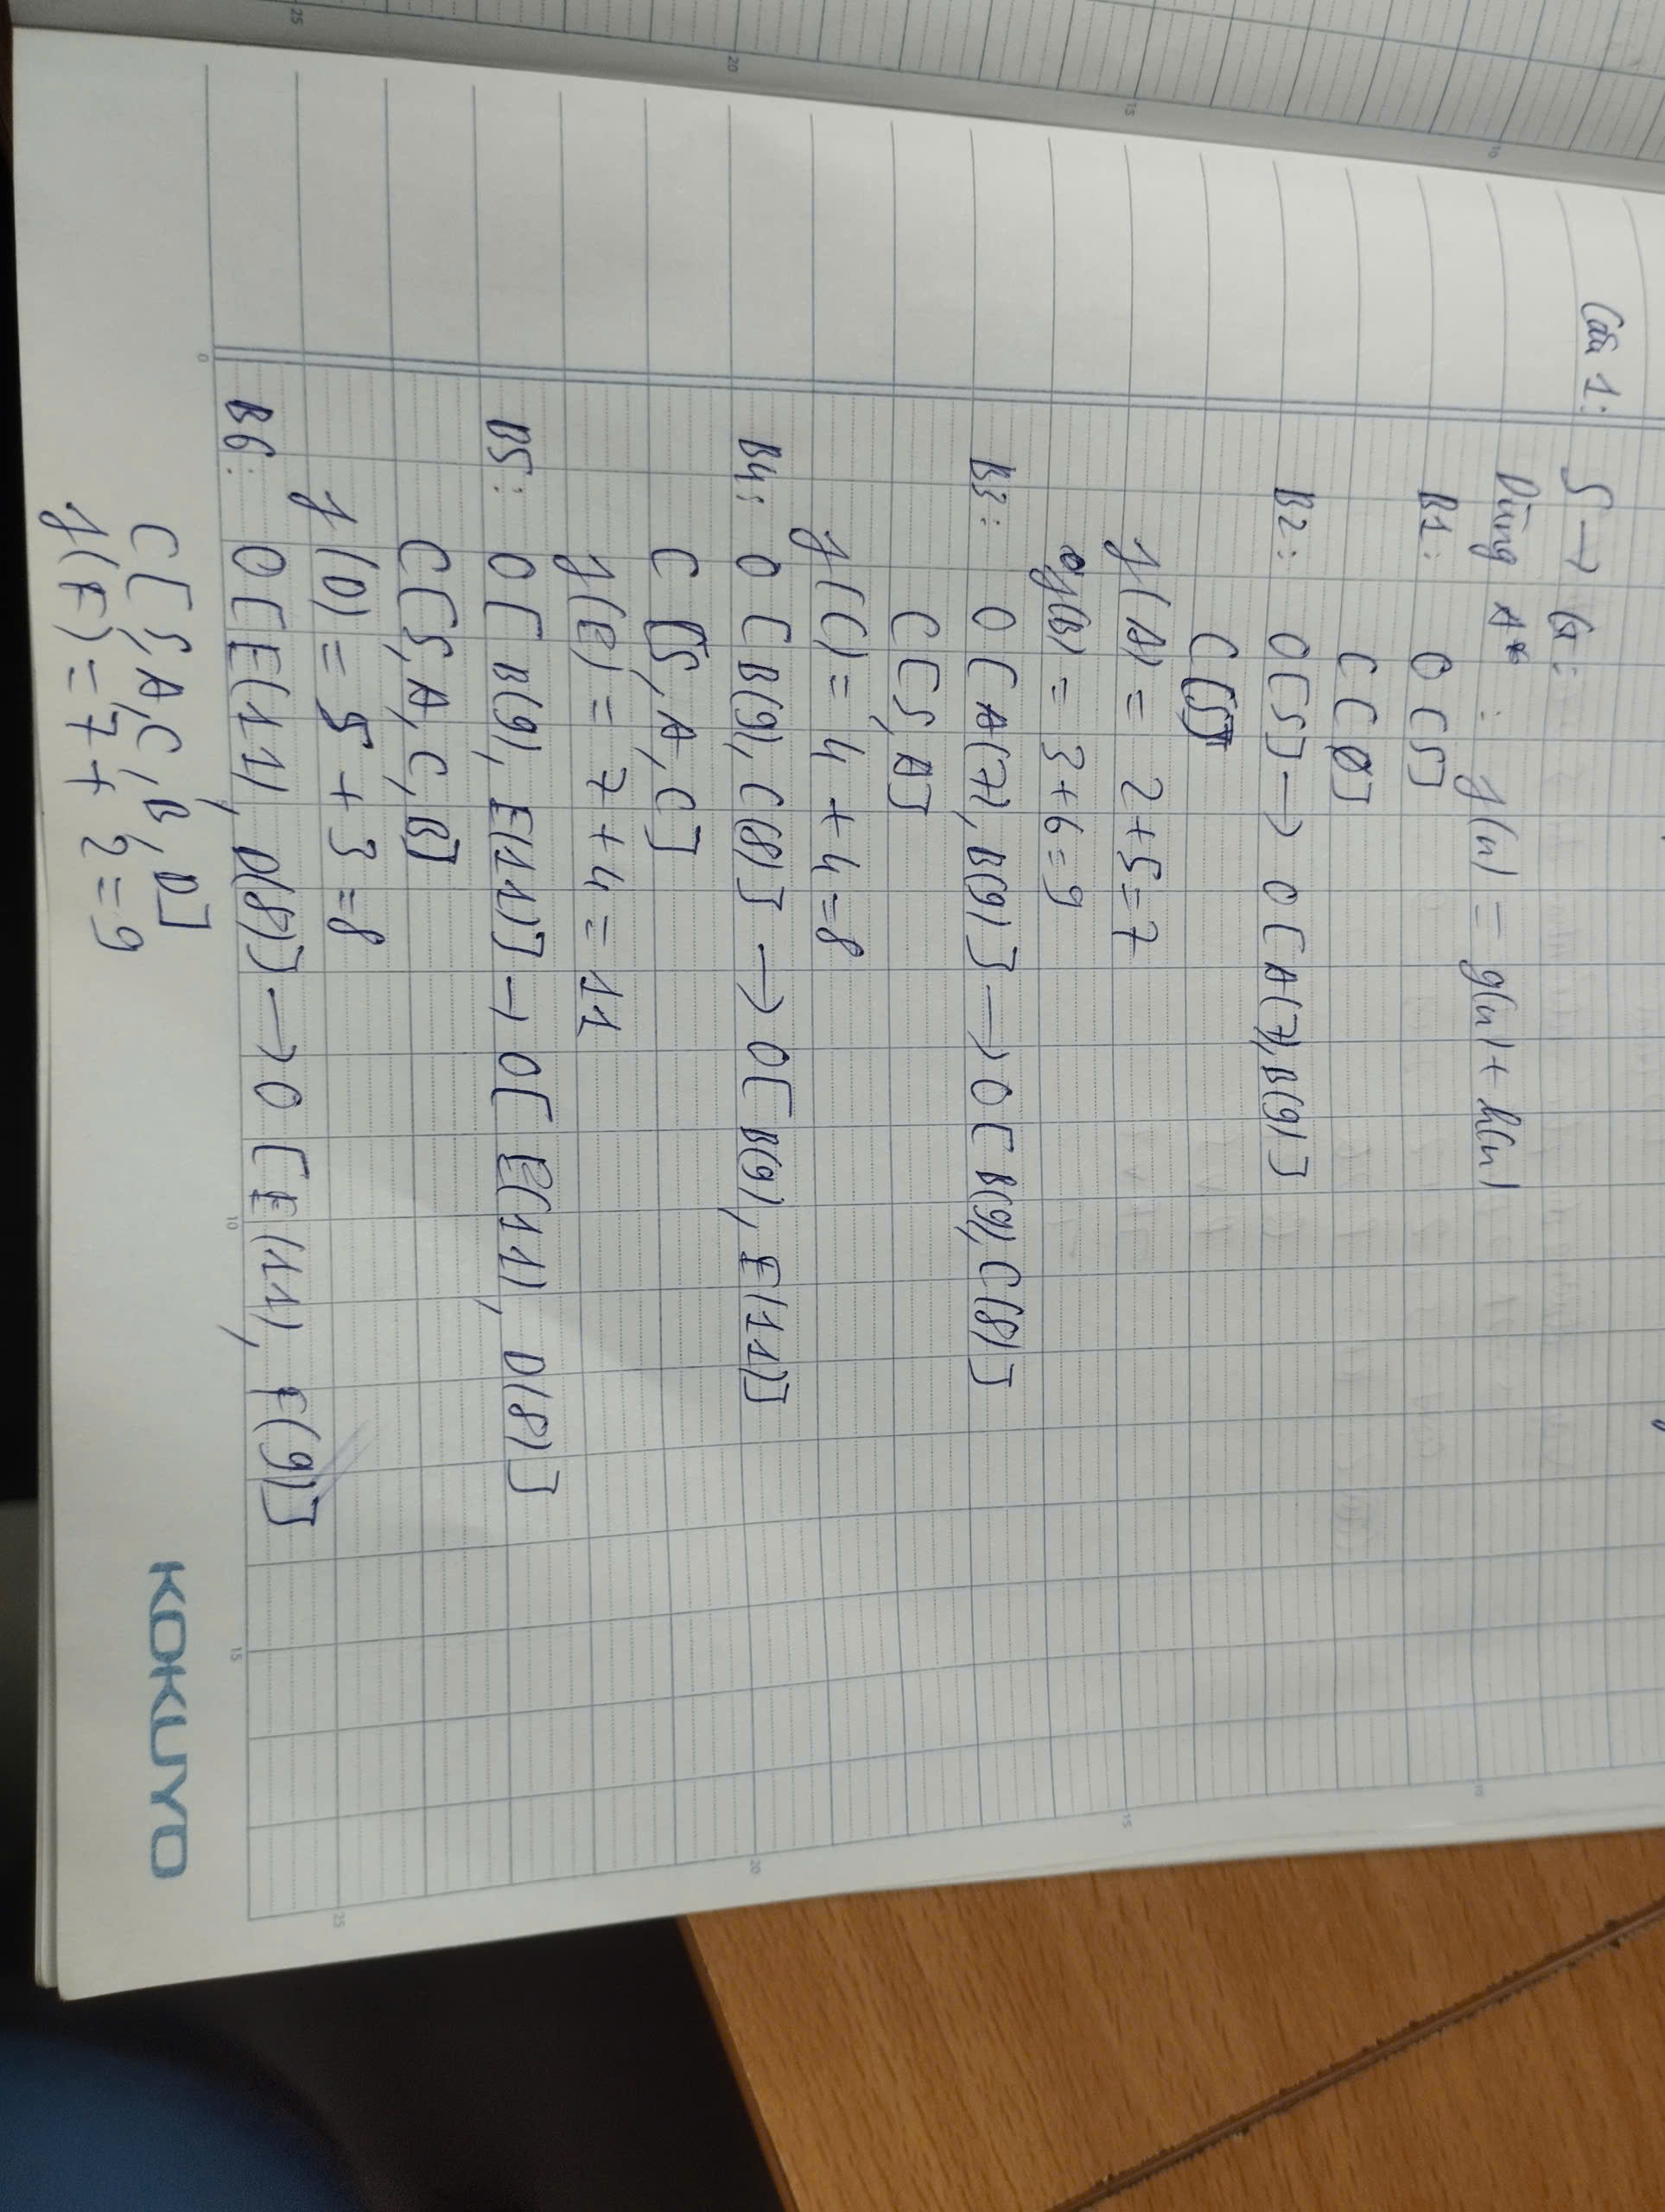 Câu 1: S → G:
Dùng A* : f(n) = g(n) + h(n)
B1: O [S]
C [Ø]
B2: O[S] → O [A(7), B(9)]
C [S]
f(A) = 2+5=7
f(B) = 3+6=9
B3: O [A(7), B(9)] → O [B(9), C(8)]
C [S, A]
f(C) = 4 + 4 = 8
B4: O [B(9), C(8)] → O[B(9), E(11)]
C [S, A, C]
f(E) = 7 + 4 = 11
B5: O [B(9), E(11)] → O[E(11), D(8)]
C[S, A, C, B]
f(D) = 5 + 3 = 8
B6: O [E(11), D(8)] → O [E(11), F(9)]
C [S, A, C, B, D]
f(F) = 7 + 2 = 9
KOKUYO
10
15
20
25
0
10
15
10
15
20
25